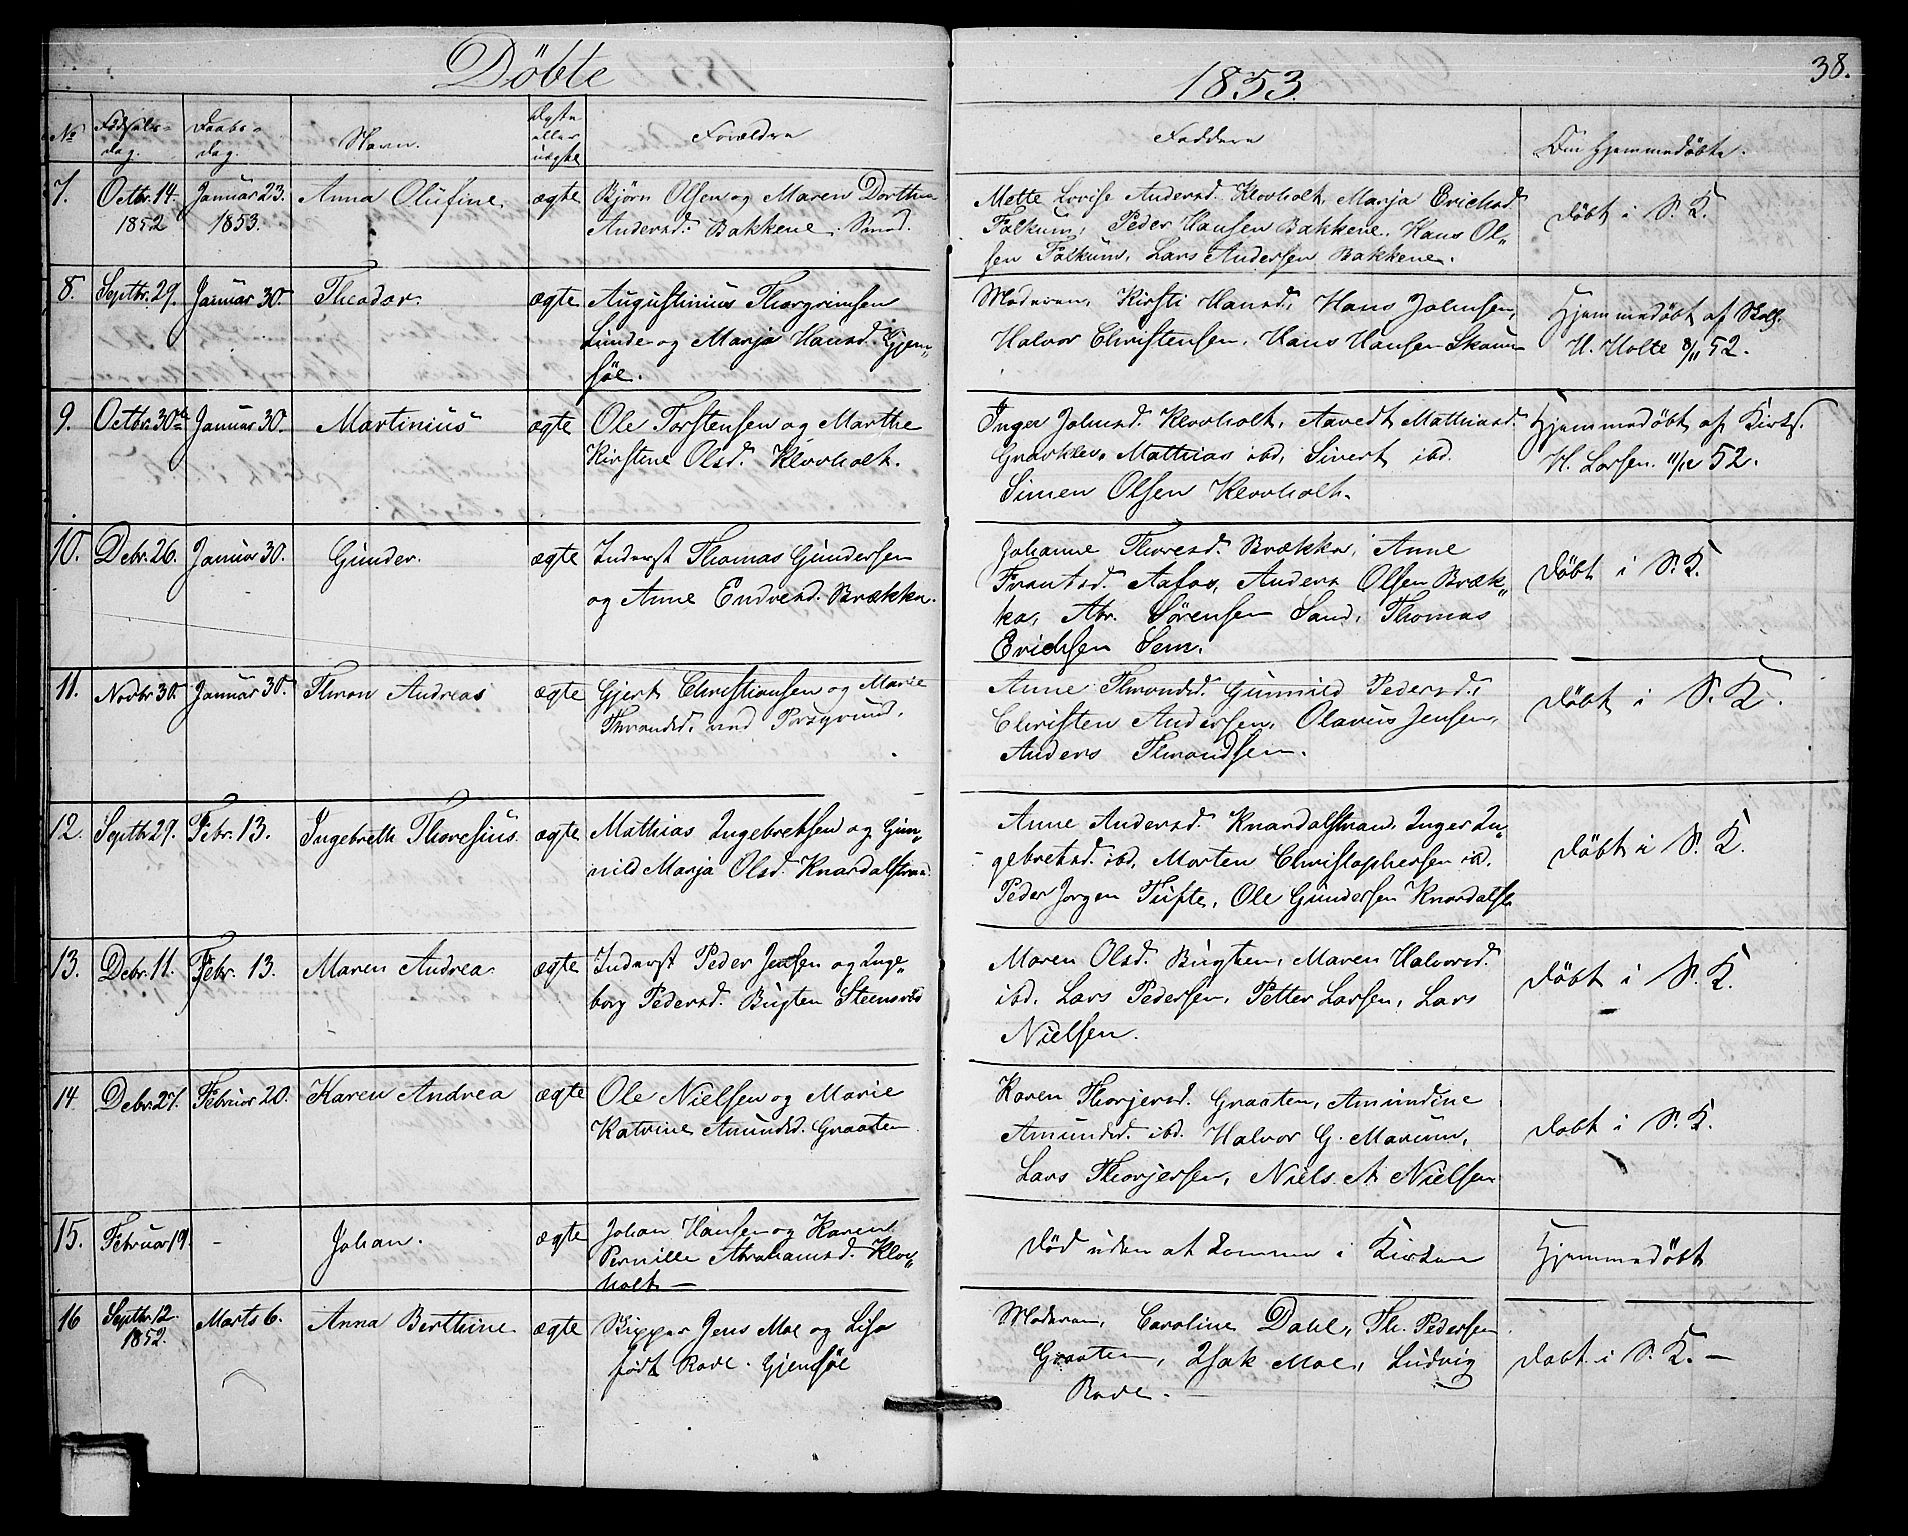 Döbte
1853.
38.
No
Födsels-
dag.
Daabs-
dag.
Navn.
Ægte
eller
uægte
Forældre
Faddere
Om Hjemmedöbte.
7.
Octbr. 14.
1852
Januar 23.
1853.
Anna Olufine.
ægte
Björn Olsen og Maren Dorthea
Andersd. Bakkene.
Mette Lovise Andersd. Klovholt, Marja Erichsd.
Falkum, Peder Hansen Bakkene, Hans Ol„
sen Falkum, Lars Andersen Bakkene.
döbt i S. K.
8.
Septbr. 29.
Januar 30.
Theodor.
ægte
Augustinius Thorgrimsen
Linde og Marja Hansd. Gjem„
söe.
Moderen, Kirsti Hansd., Hans Johnsen,
Halvor Christensen, Hans Hansen Skaun
Hjemmedöbt af
H. Holte 8/11 52.
9.
Octbr. 30te
Januar 30.
Martinius
ægte
Ole Torstensen og Marthe
Kirstene Olsd. Klovholt.
Inger Johnsd. Klovholt, Mathiasd.
Gravklev, Mathias ibd, Sivert ibd.
Simen Olsen Klovholt.
Hjemmedöbt af Kirks.
H. Larsen. 11/12 52.
10.
Debr. 26.
Januar 30.
Gunder.
ægte
Inderst Thomas Gundersen
og Anne Endresd. Brækka.
Johanne Thoresd. Brækka, Anne
Frantsd. Aafos, Anders Olsen Bræk„
ka, Abr. Sörensen Sand, Thomas
Erichsen Sem.
döbt i S. K.
11.
Novbr 30.
Januar 30.
Thron Andreas
ægte
Gjert Christiansen og Marie
Throndsd. ved Porsgrund.
Anne Throndsd. Gunnild Pedersd.,
Christen Andersen, Olavus Jensen,
Anders Throndsen.
döbt i S. K.
12.
Septbr 29.
Febr. 13.
Ingebreth Thoresius.
ægte
Mathias Ingebretsen og Gun„
nild Marja Olsd. Knardalstran
Anne Andersd. Knardalstran, Inger In„
gebretsd. ibd, Morten Christophersen ibd.
Peder Jörgen Tufte, Ole Gundersen Knardalst
döbt i S. K.
13.
Debr. 11.
Febr. 13.
Maren Andrea
ægte
Inderst Peder Jensen og Inge„
borg Pedersd. Bugten Steensrød
Maren Olsd. Bugten, Maren Halvorsd.
ibd. Lars Pedersen, Petter Larsen, Lars
Nielsen.
döbt i S. K.
14
Debr. 27.
Februar 20.
Karen Andrea
ægte
Ole Nielsen og Marie
Katrine Amundsd. Graaten
Karen Thorjersd. Graaten, Amundine
Amundsd. ibd. Halvor G. Marum,
Lars Thorjersen, Niels A Nielsen
dobt i S. K.
15.
Februar 19.
-
Johan.
ægte
Johan Hansen og Karen
Pernille Abrahamsd. Klov„
holt —
död uden at komme i Kirken
Hjemmedöbt
16
Septbr. 12
1852.
Marts 6.
Anna Berthine
ægte
Skipper Jens Moe og Lisa
født Rode. Gjemsöe
Moderen, Caroline Dahl, Th. Pedersen
Graaten, Isak Moe, Ludvig
Rode. —
dobt i S. K. —